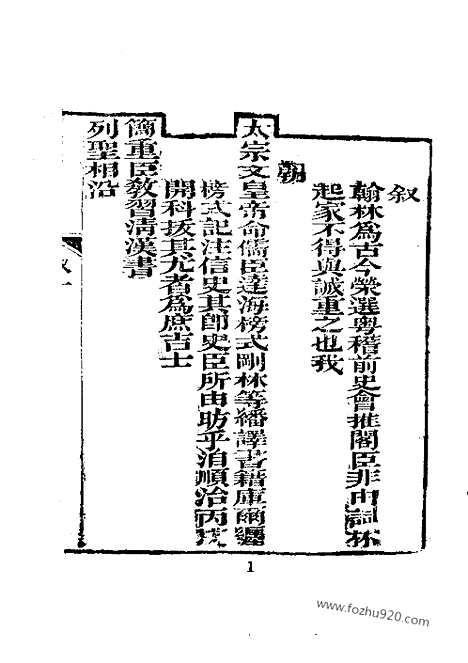 叙
翰林爲古今榮選粤稽前史會推閣臣非由詞林
起家不得與誠重之也我
朝
太宗文皇帝命儒臣達海榜式剛林等繙譯書籍庫爾纏
榜式記注信史其卽史臣所由昉乎洎順治丙戌
開科拔其尤者爲庶吉士
簡重臣敎習淸漢書
列聖相沿
1
www.fozhu920.com